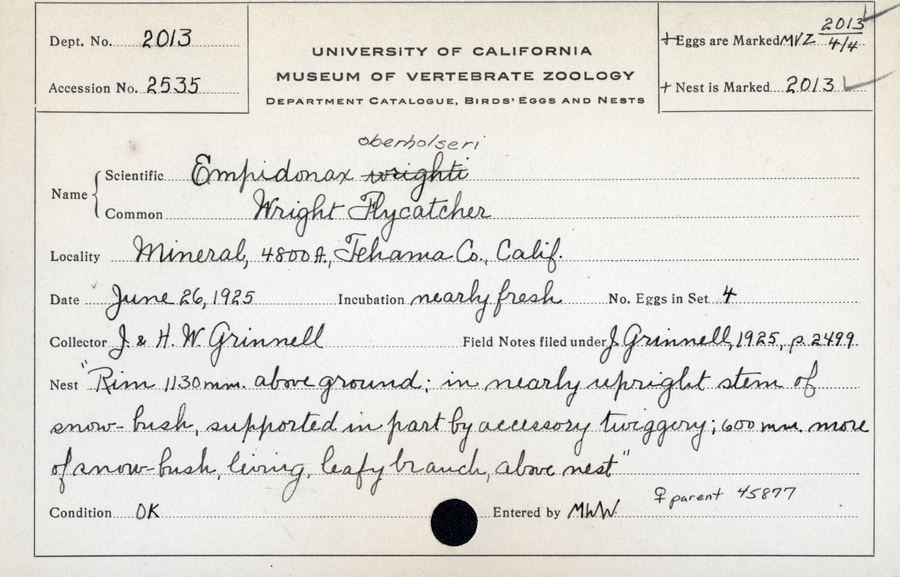 Dept. No. 2013
Accession No. 2535
UNIVERSITY OF CALIFORNIA
MUSEUM OF VERTEBRATE ZOOLOGY
DEPARTMENT CATALOGUE, BIRDS' EGGS AND NESTS
+Eggs are Marked MVZ 2013 4/4
+ Nest is Marked 2013
oberholseri
Name { Scientific Empidonax wrighti
Common Wright Flycatcher
Locality Mineral, 4800 ft., Tehama Co., Calif.
Date June 26, 1925 Incubation nearly fresh No. Eggs in Set 4
Collector J. & H. W. Grinnell Field Notes filed under J. Grinnell, 1925, p. 2499.
Nest "Rim 1130 mm. above ground; in nearly upright stem of
snow-bush, supported in part by accessory twiggery; 600 mm. more
of snow-bush, living, leafy branch, above nest"
♀ parent 45877
Condition OK Entered by MWW